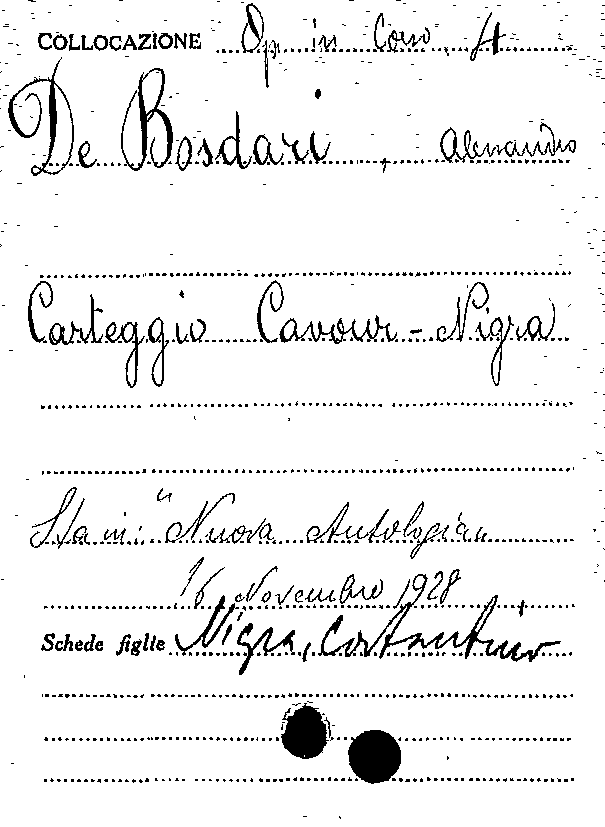 COLLOCAZIONE Op. in Cons. 4
De Bosdari, Alessandro
Carteggio Cavour-Nigra
Sta in: "Nuova Antologia"
16 Novembre 1928
Schede figlie Nigra, Costantino